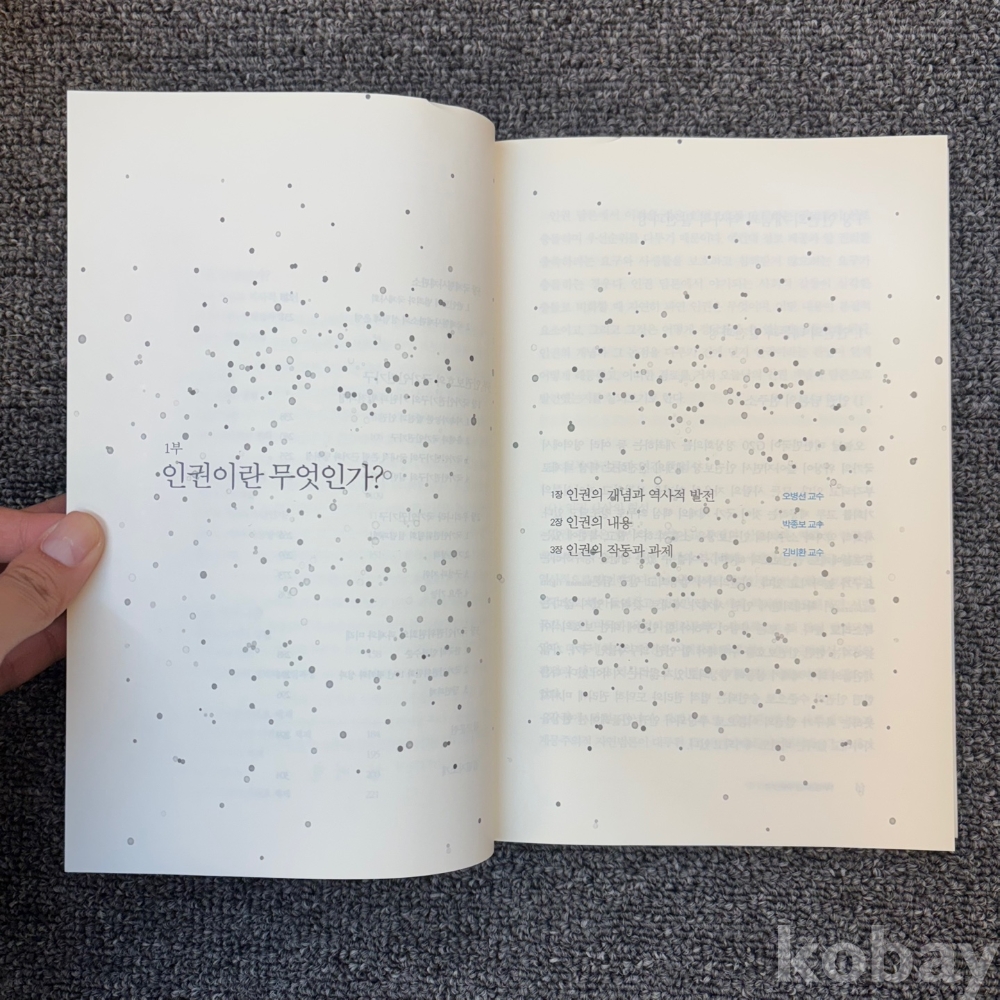 1부
인권이란 무엇인가?
1장 인권의 개념과 역사적 발전 오병선 교수
2장 인권의 내용 박종보 교수
3장 인권의 작동과 과제 김비환 교수
kobay